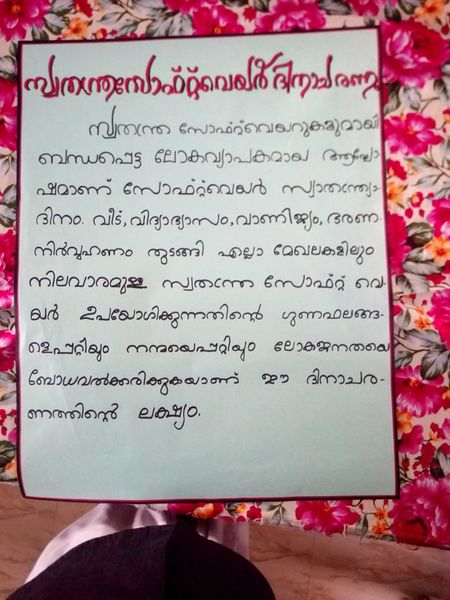 സ്വതന്ത്രസോഫ്റ്റ്‌വെയർ ദിനാചരണം
സ്വതന്ത്ര സോഫ്റ്റ്‌വെയറുകളുമായി
ബന്ധപ്പെട്ട ലോകവ്യാപകമായ ആഘോ
ഷമാണ് സോഫ്റ്റ്‌വെയർ സ്വാതന്ത്ര്യ-
ദിനം. വീട്, വിദ്യാഭ്യാസം, വാണിജ്യം, ഭരണ-
നിർവ്വഹണം തുടങ്ങി എല്ലാ മേഖലകളിലും
നിലവാരമുള്ള സ്വതന്ത്ര സോഫ്റ്റ് വെ-
യർ ഉപയോഗിക്കുന്നതിന്റെ ഗുണഫലങ്ങ-
ളെപ്പറ്റിയും നന്മയെപ്പറ്റിയും ലോകജനതയെ
ബോധവൽക്കരിക്കുകയാണ് ഈ ദിനാചര-
ണത്തിന്റെ ലക്ഷ്യം.